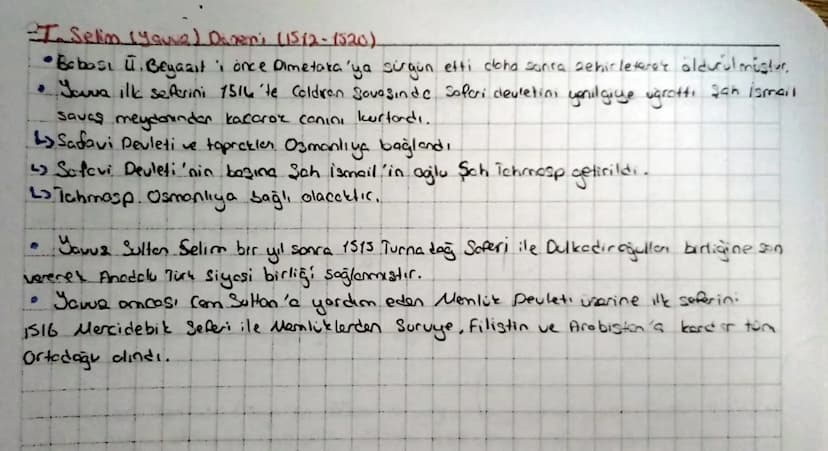 I. Selim (Yavuz) Dönemi (1512-1520)
• Babası II. Beyazıt'ı önce Dimetoka'ya sürgün etti daha sonra zehirleterek öldürülmüştür.
• Yavuz ilk seferini 1514'te Çaldıran Savaşında Safevi devletini yenilgiye uğrattı Şah İsmail
savaş meydanından kaçarak canını kurtardı.
↳ Safavi Devleti ve toprakları Osmanlıya bağlandı
↳ Safevi Devleti'nin başına Şah İsmail'in oğlu Şah Tahmasp getirildi.
↳ Tahmasp Osmanlıya bağlı olacaktır.
• Yavuz Sultan Selim bir yıl sonra 1515 Turnadağ Seferi ile Dulkadiroğulları birliğine son
vererek Anadolu Türk Siyasi birliği sağlanmıştır.
• Yavuz amcası Cem Sultan'a yardım eden Memlük Devleti üzerine ilk seferini
1516 Mercidabık Seferi ile Memlüklerden Suruye, Filistin ve Arabistan'a kadar tüm
Ortadoğu alındı.